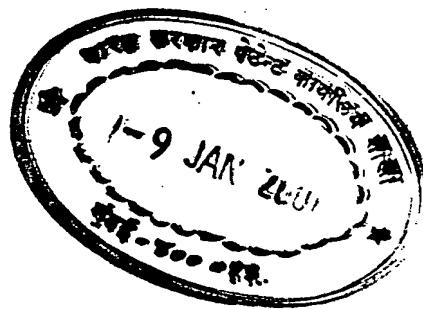 भारत सरकार पेटेन्ट कार्यालय शाखा
-9 JAN
मुंबई-४००